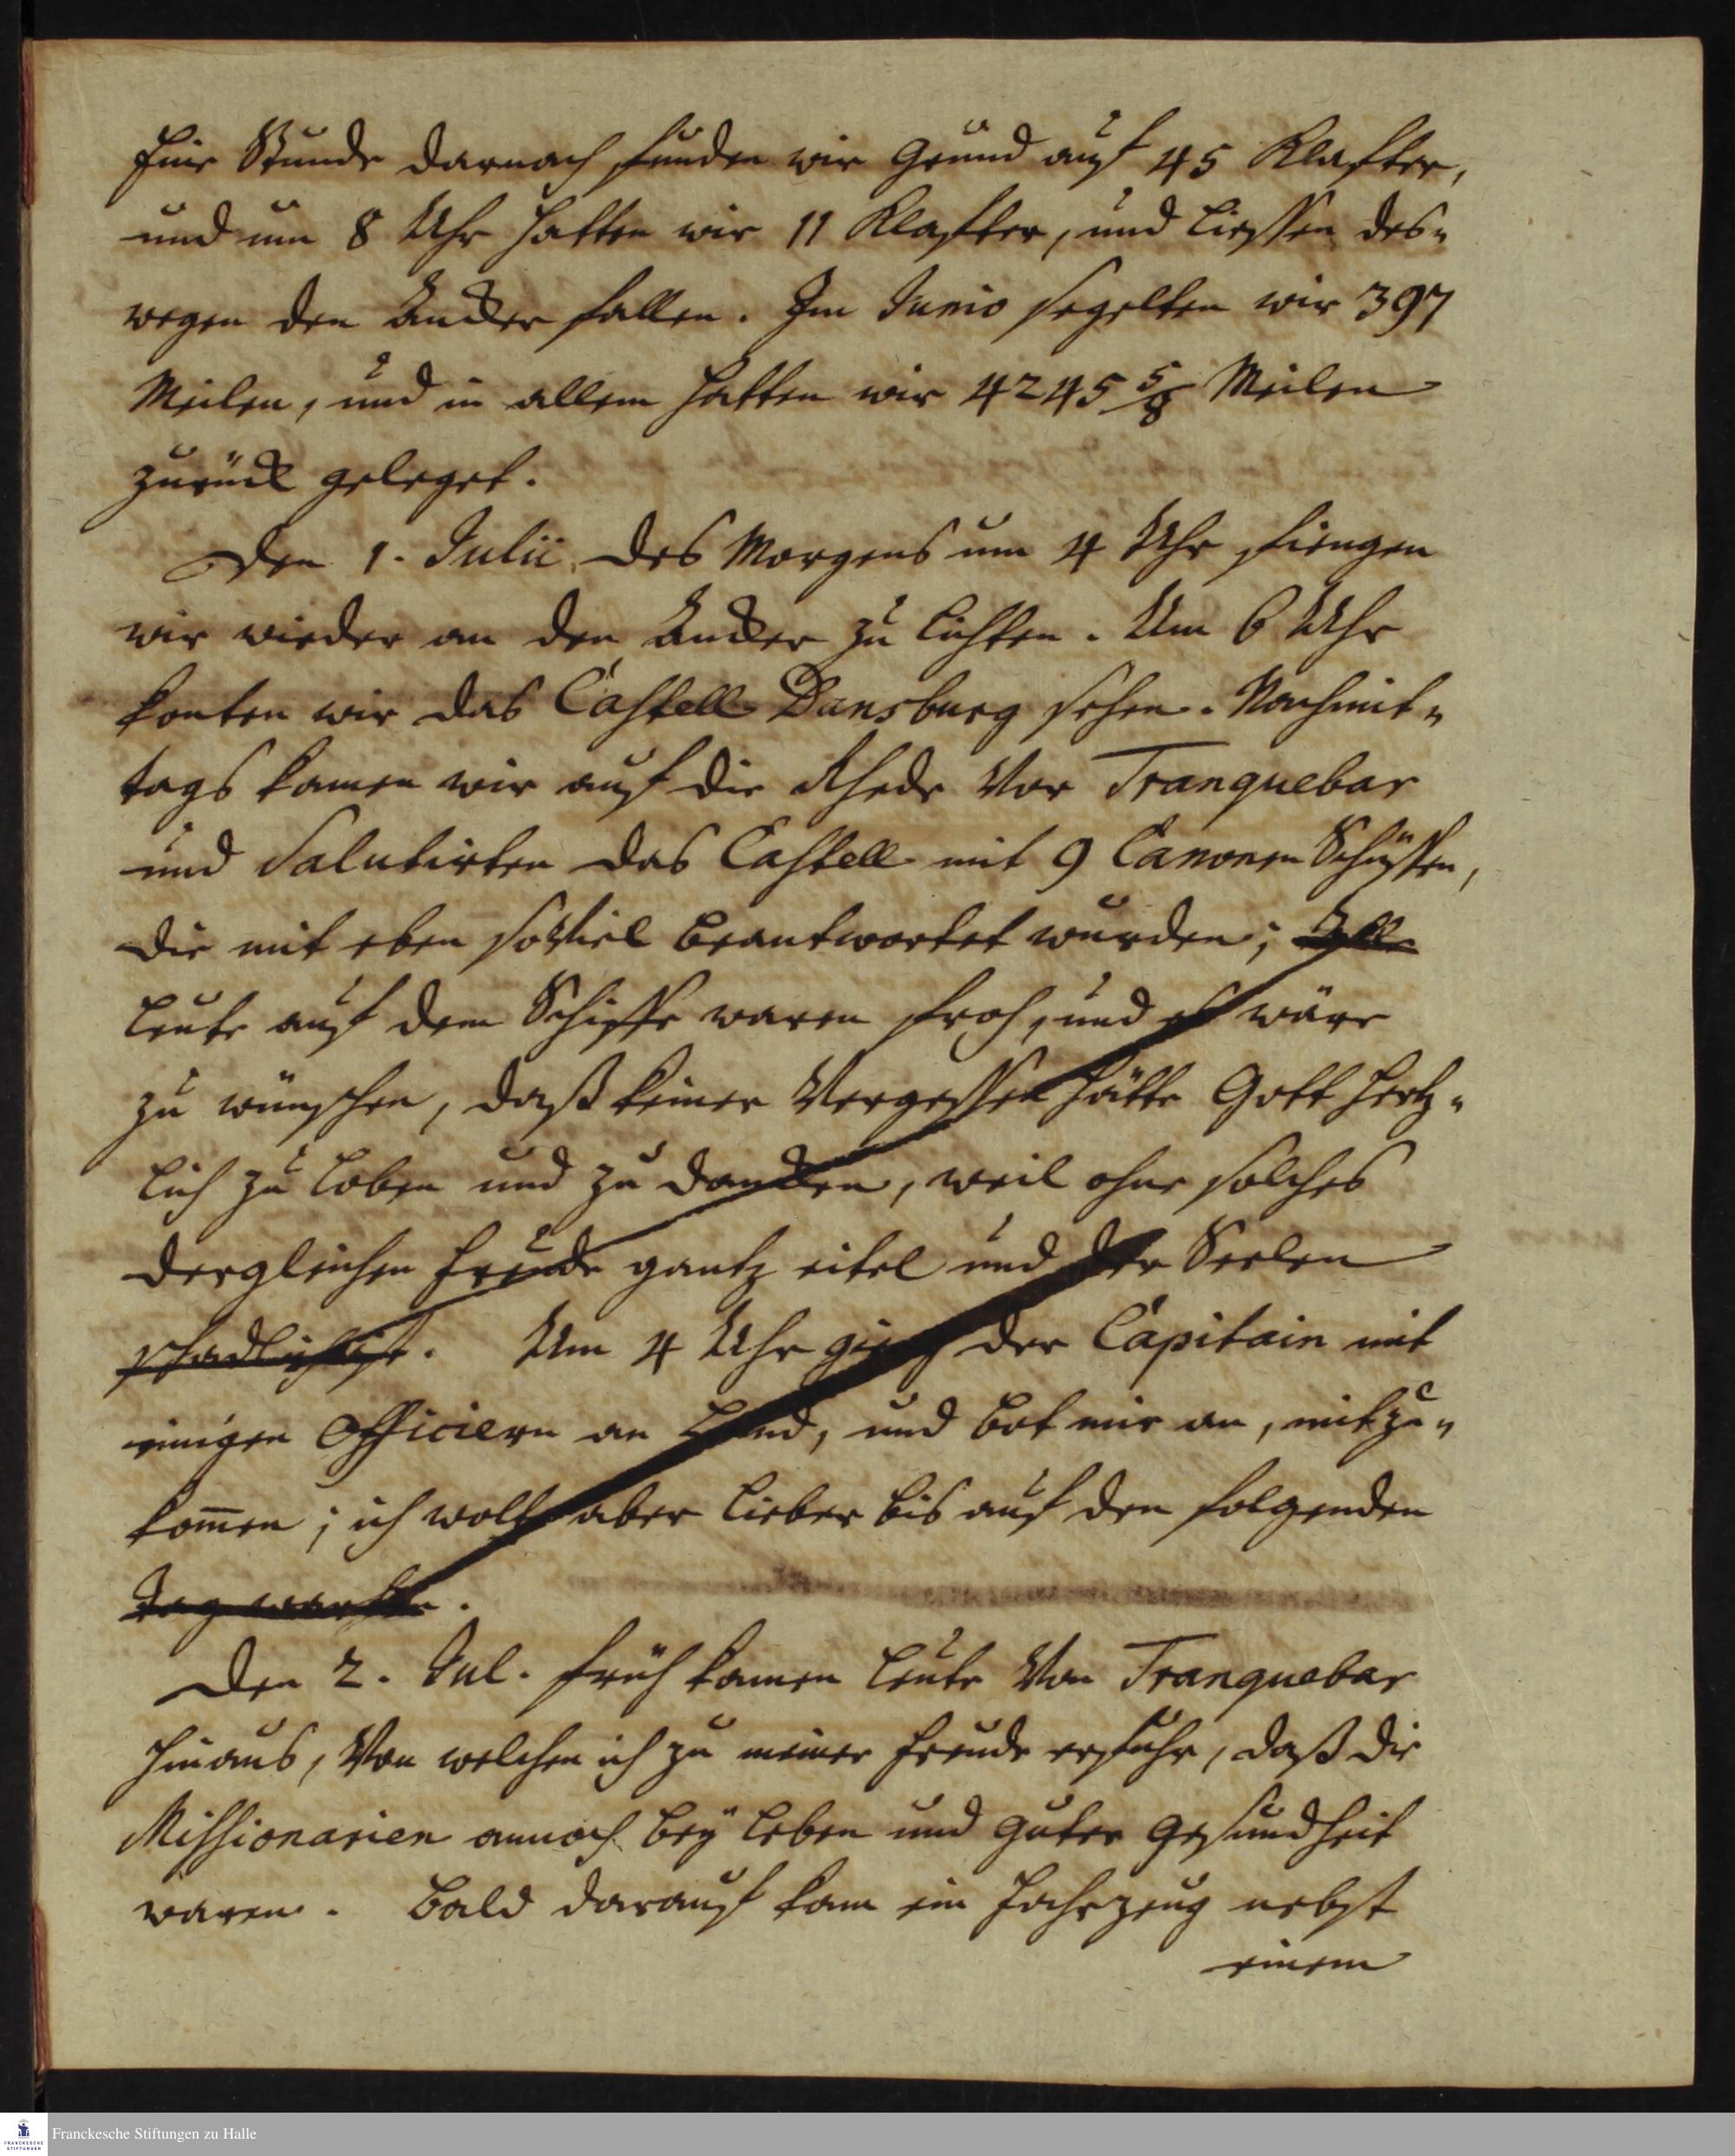 Eine Stunde darnach funden wir Grund auf 45 Klafter,
und um 8 Uhr hatten wir 11 Klafter, und liessen des=
wegen den Ancker fallen. Im Junio segelten wir 397
Meilen, und in allem hatten wir 4245 5/8 Meilen
zurück geleget.
Den 1. Julii des Morgens um 4 Uhr fiengen
wir wieder an den Ancker zu lichten. Um 6 Uhr
konten wir das Castell Dansburg sehen. Nachmit=
tags kamen wir auf die Rhede vor Tranquebar
und salutirten das Castell mit 9 Canonen Schüssen,
die mit eben soviel beantwortet wurden; Alle
Leute auf dem Schiffe waren froh, und es wäre
zu wünschen, daß keiner vergessen hätte Gott hertz=
lich zu loben und zu dancken, weil ohne solches
dergleichen Freude gantz eitel und der Seelen
schädlich ist. Um 4 Uhr gieng der Capitain mit
einigen Officiern an Land, und bot mir an, mitzu=
kom̄en; ich wolte aber lieber bis auf den folgenden
Tag warten.
Den 2. Jul. früh kamen Leute von Tranquebar
hinaus, von welchen ich zu meiner Freude erfuhr, daß die
Missionarien annoch bey Leben und guter Gesundheit
waren. Bald darauf kam ein Fahrzeug nebst
einem
FRANCKESCHE
STIFTUNGEN
Franckesche Stiftungen zu Halle